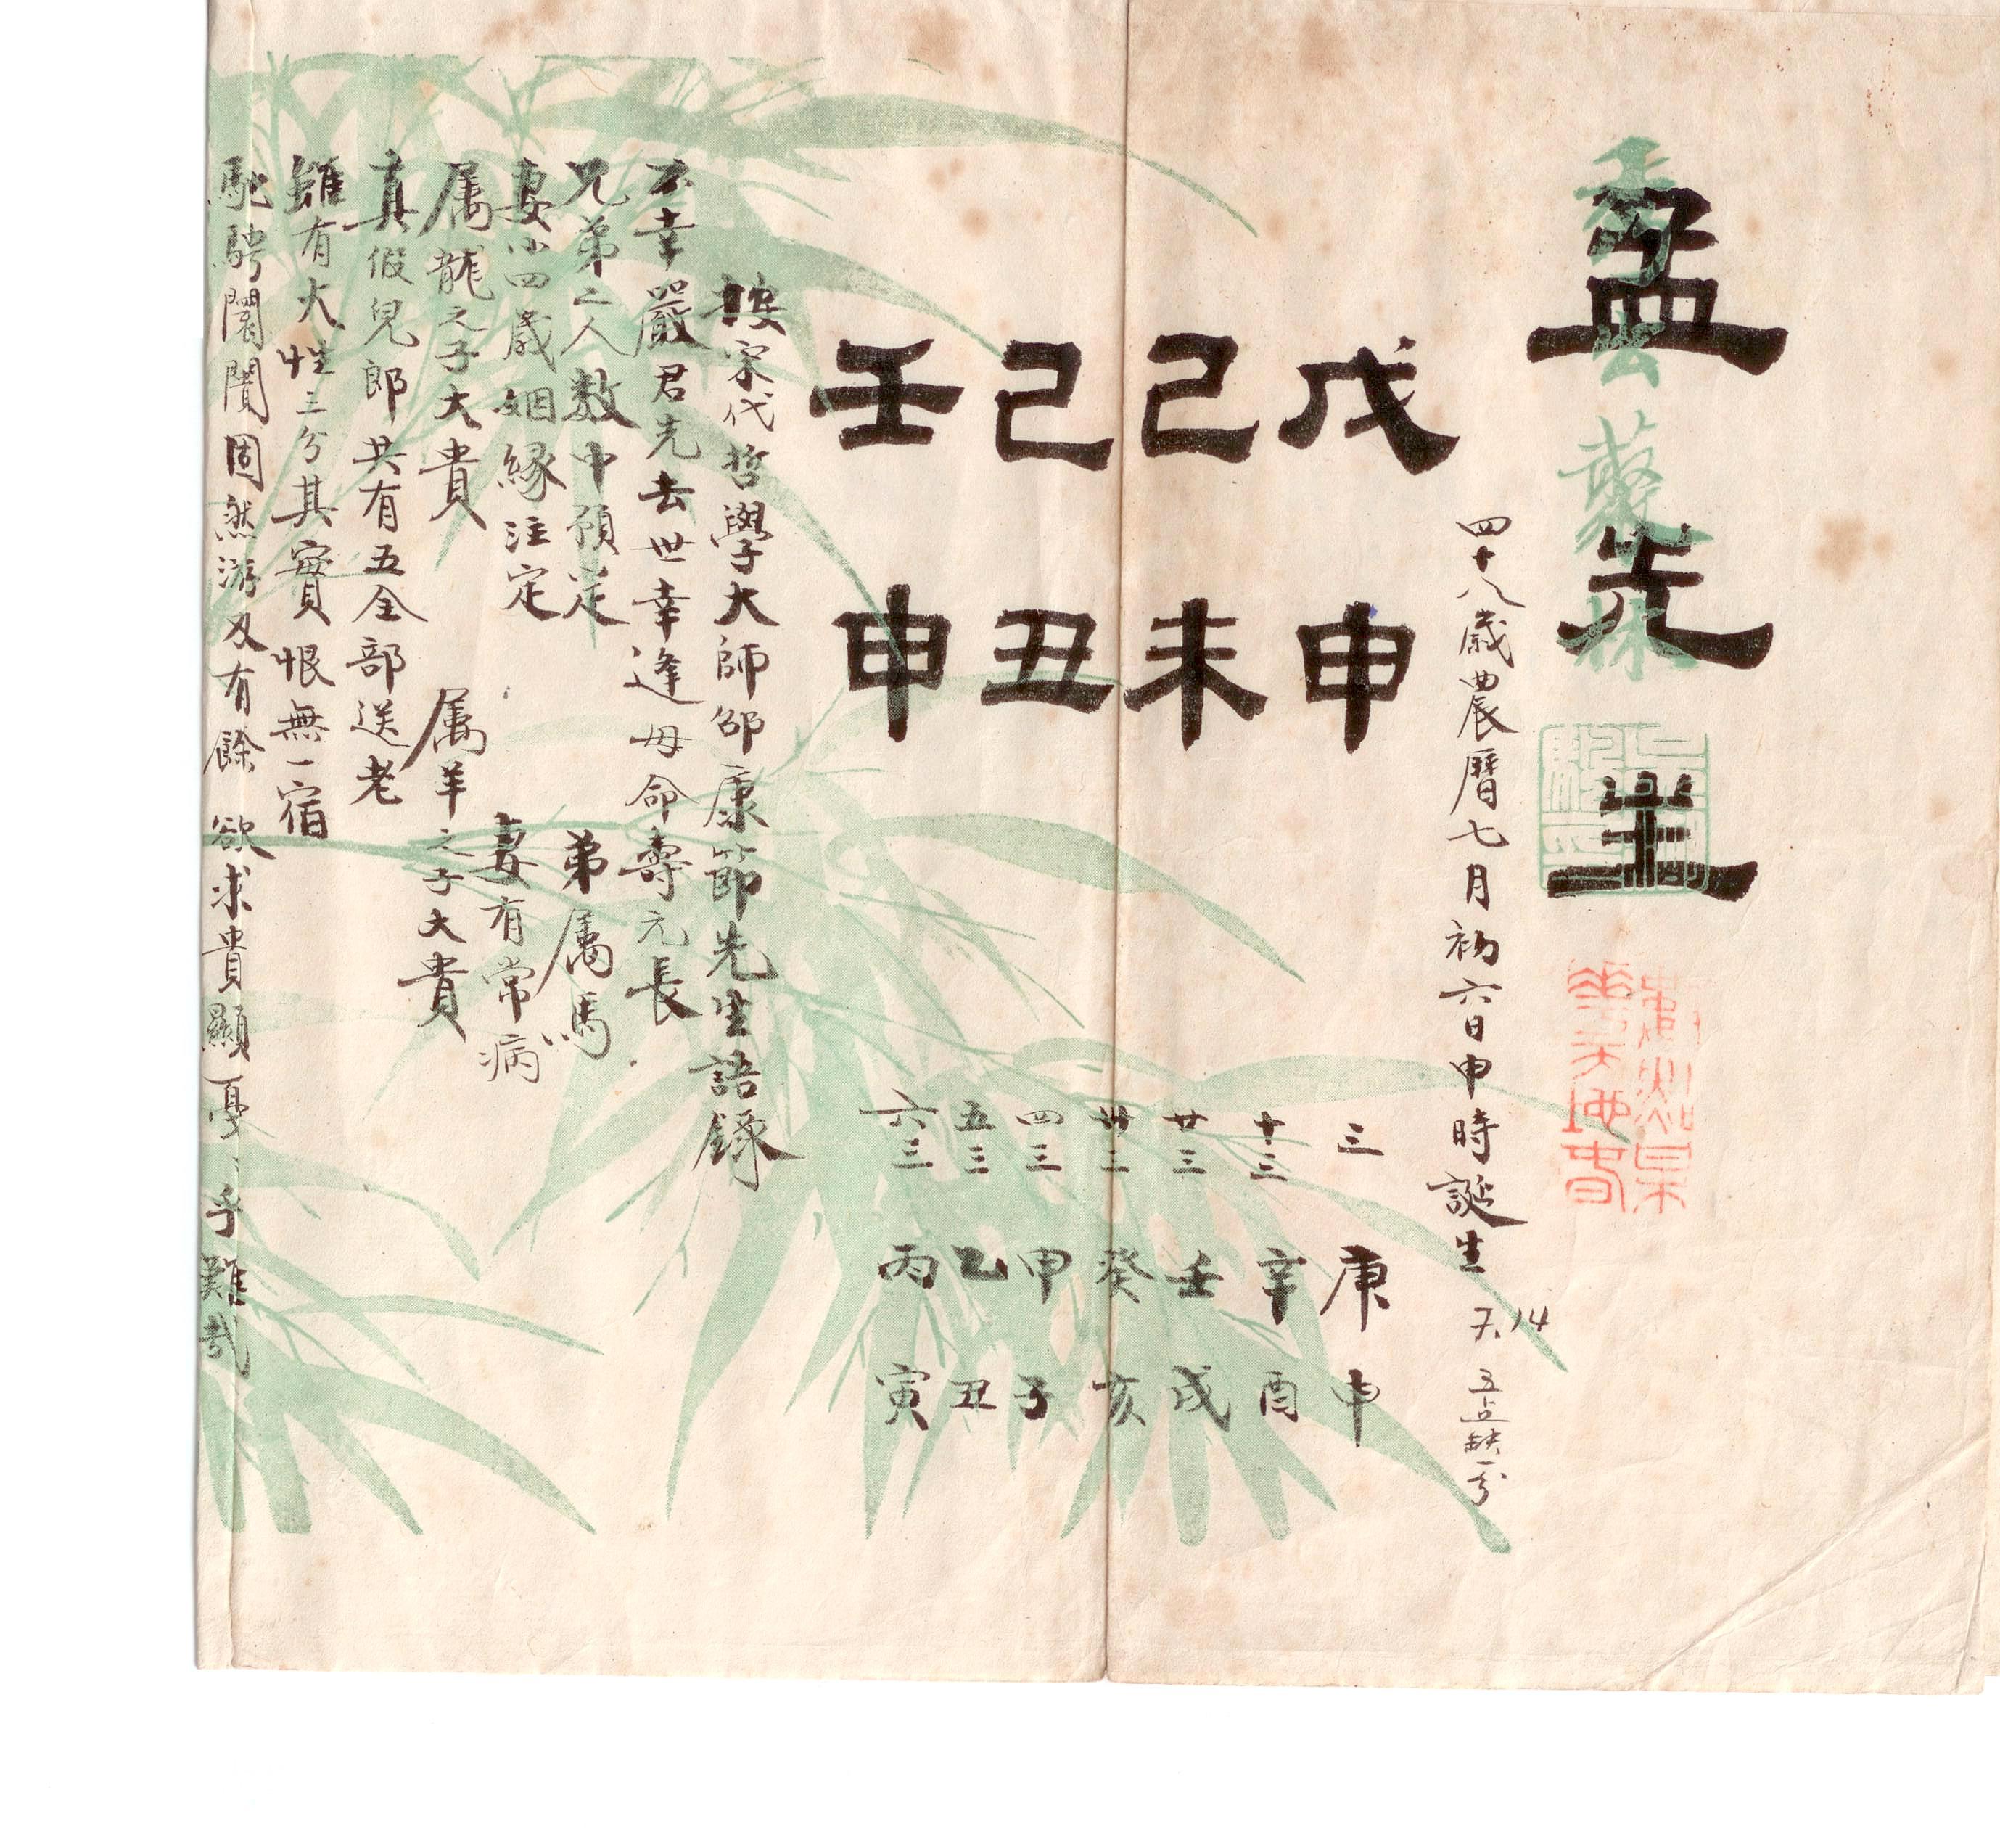 孟先生
四十八歲農曆七月初六日申時誕生
天14
五点缺一分
戊申
己未
己丑
壬申
三 庚申
十三 辛酉
廿三 壬戌
卅三 癸亥
四三 甲子
五三 乙丑
六三 丙寅
按宋代哲學大師邵康節先生語錄
不幸嚴君先去世幸逢母命壽元長
兄弟二人数中預定 弟属馬
妻小四歲姻緣注定 妻有常病
属龍之子大貴 属羊之子大貴
真假兒郎共有五全部送老
雖有火性三分其實恨無一宿
馳騁闤闠固然游刃有餘 欲求貴顯戛乎難哉